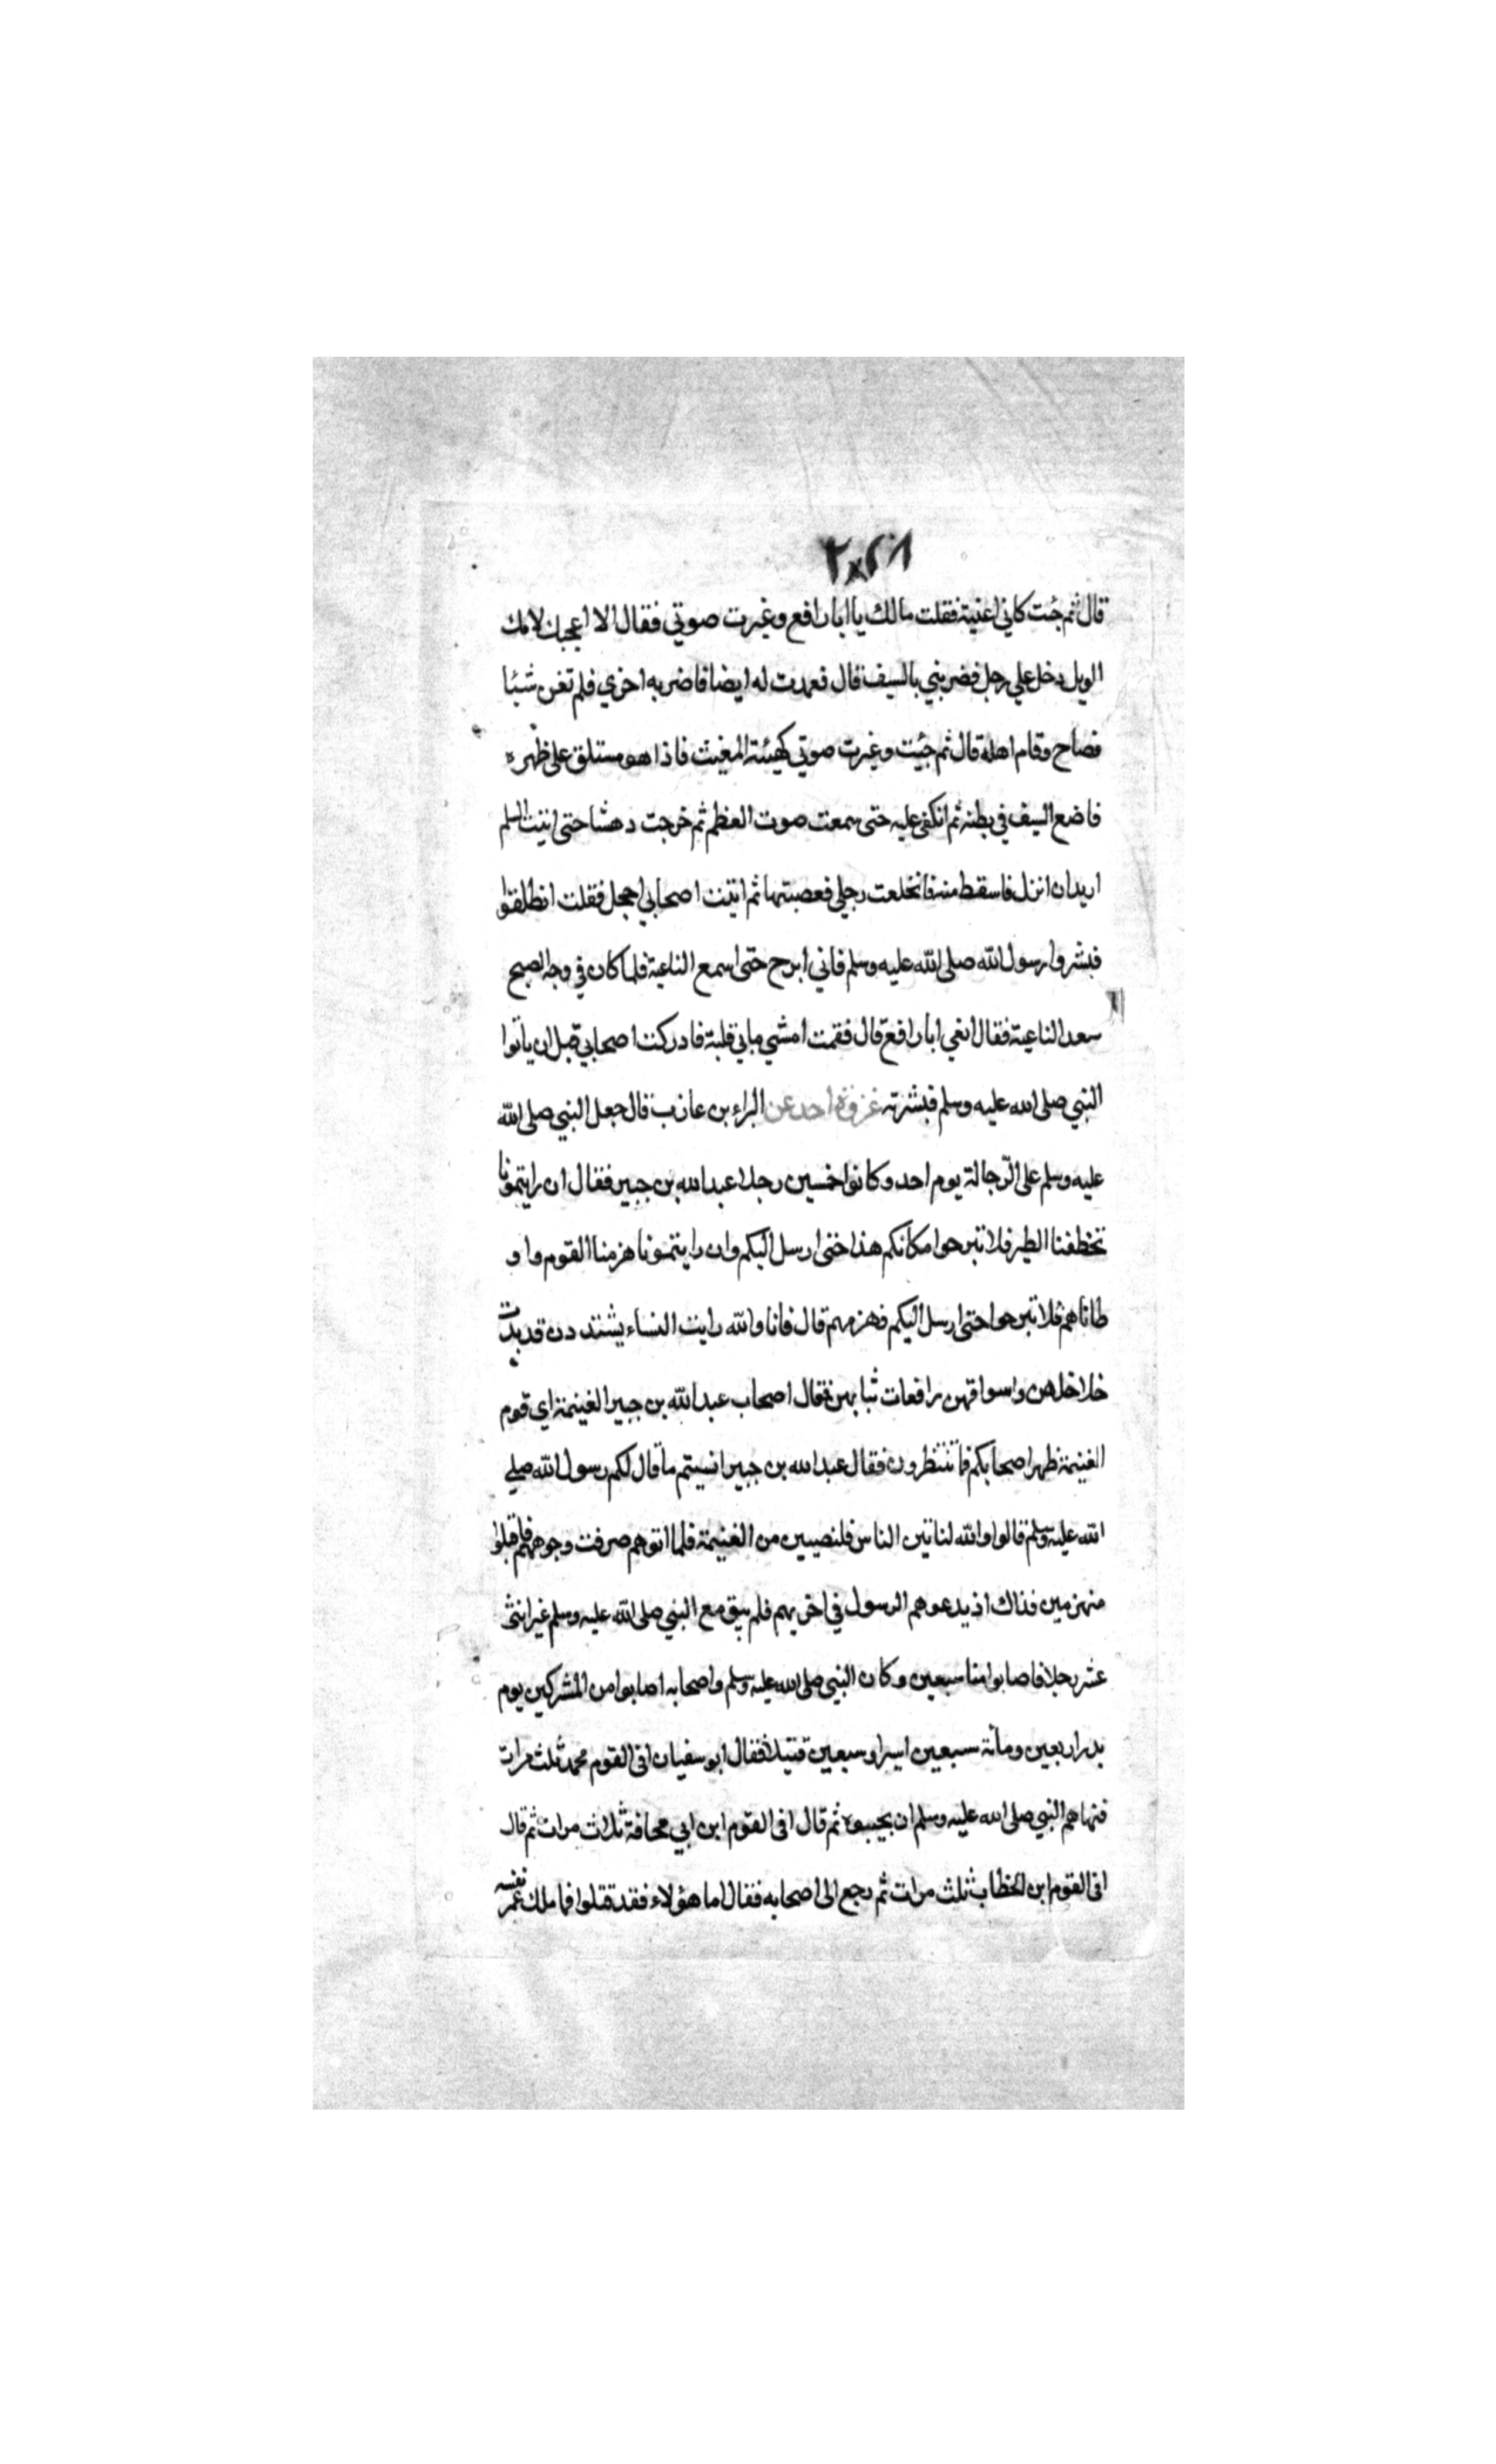 قال ثم جئت كاني اغنية فقلت مالك يا ابا رافع وغيرت صوتي فقال الا اعجبك لامك
الويل دخل علي رجل فضربني بالسيف قال فعمدت له ايضا فاضربه اخري فلم تغن شيئا
فصاح وقام اهله قال ثم جئيت وغيرت صوتي كهيئة المغيث فاذا هو مستلق على ظهره
فاضع السيف في بطنه ثم انكفى عليه حتى سمعت صوت العظم ثم خرجت دهشا حتى اتيت السلم
اريد ان انزل فاسقط منه فانخلعت رجلي فعصبتها ثم اتيت اصحابي احجل فقلت انطلقوا
فبشروا رسول الله صلى الله عليه وسلم فاني ابرح حتى اسمع الناعية فلما كان في وجه الصبح
سعد الناعية فقال انعي ابا رافع قال فقمت امشي مابي قلبة فادركت اصحابي قبل ان ياتوا
النبي صلى الله عليه وسلم فبشرته غزوة احد عن البراء بن عازب قال جعل النبي صلى الله
عليه وسلم على الرجالة يوم احد وكانوا خمسين رجلا عبد الله بن جبير فقال ان رايتمونا
تخطفنا الطير فلا تبرحوا مكانكم هذا حتى ارسل اليكم وان رايتمونا هزمنا القوم واو
طاناهم فلا تبرحوا حتى ارسل اليكم فهزمهم قال فانا والله رايت النساء يشتددن قد بدت
خلاخلهن واسواقهن رافعات ثيابهن فقال اصحاب عبد الله بن جبير الغنيمة اى قوم
الغنيمة ظهر اصحابكم فما تنتظرون فقال عبد الله بن جبير انسيتم ما قال لكم رسول الله صلي
الله عليه وسلم قالوا والله لناتين الناس فلنصيبن من الغنيمة فلما اتوهم صرفت وجوههم فاقبلوا
منهزمين فذاك اذ يدعوهم الرسول في اخريهم فلم يبق مع النبي صلى الله عليه وسلم غير اثنى
عشر رجلا فاصابوا منا سبعين وكان النبي صلى الله عليه وسلم واصحابه اصابوا من المشركين يوم
بدر اربعين ومائة سبعين اسيرا وسبعين قتيلا فقال ابو سفيان افى القوم محمد ثلث مرات
فنهاهم النبي صلى الله عليه وسلم ان يجيبوه ثم قال افى القوم ابن ابي قحافة ثلاث مرات ثم قال
افى القوم ابن الخطاب ثلث مرات ثم رجع الى اصحابه فقال اما هؤلاء فقد قتلوا فما ملك عمر نفسه